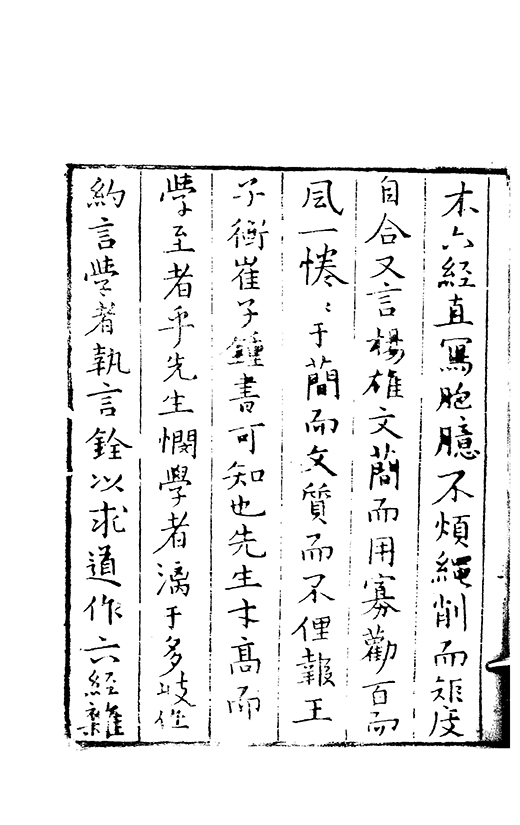 本六經直寫胞臆不煩繩削而矩度
自合又言楊雄文蕳而用寡勸百而
風一惓〻于蕳而文質而不俚報王
子衡崔子鍾書可知也先生才高而
學至者乎先生憫學者漓于多歧作
約言學者執言銓以求道作六經雜